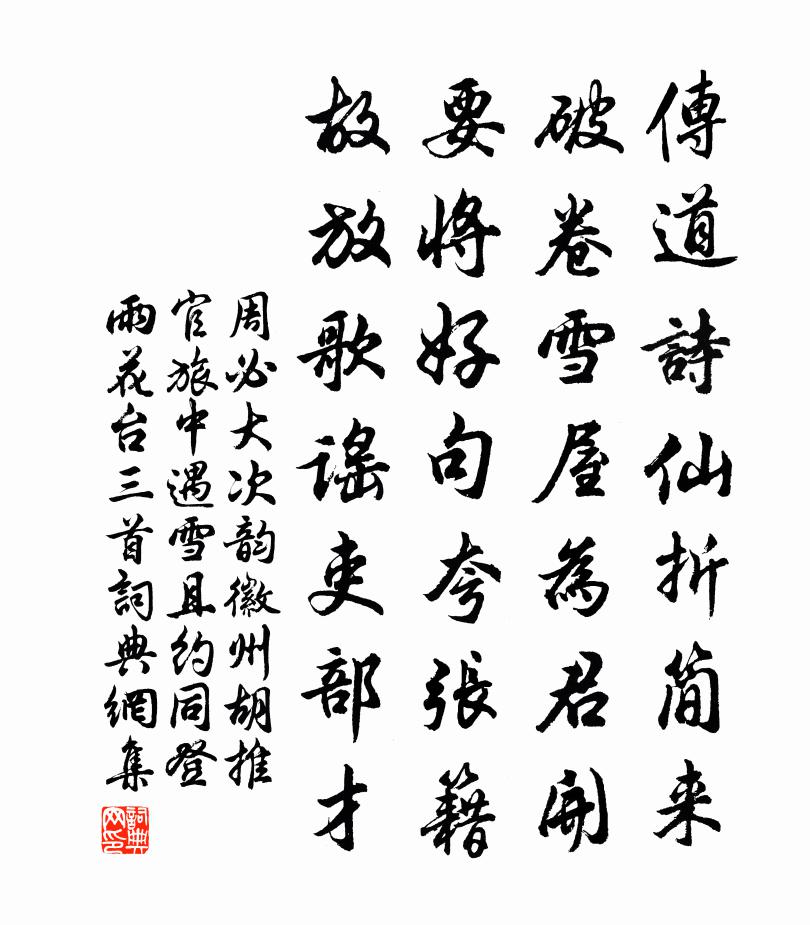 傳道詩仙折簡来
破卷雪屋為君開
要將好句夸張籍
故放歌谣吏部才
周必大次韵徽州胡推
官旅中遇雪且約同登
雨花台三首詞典網集
詞典网印